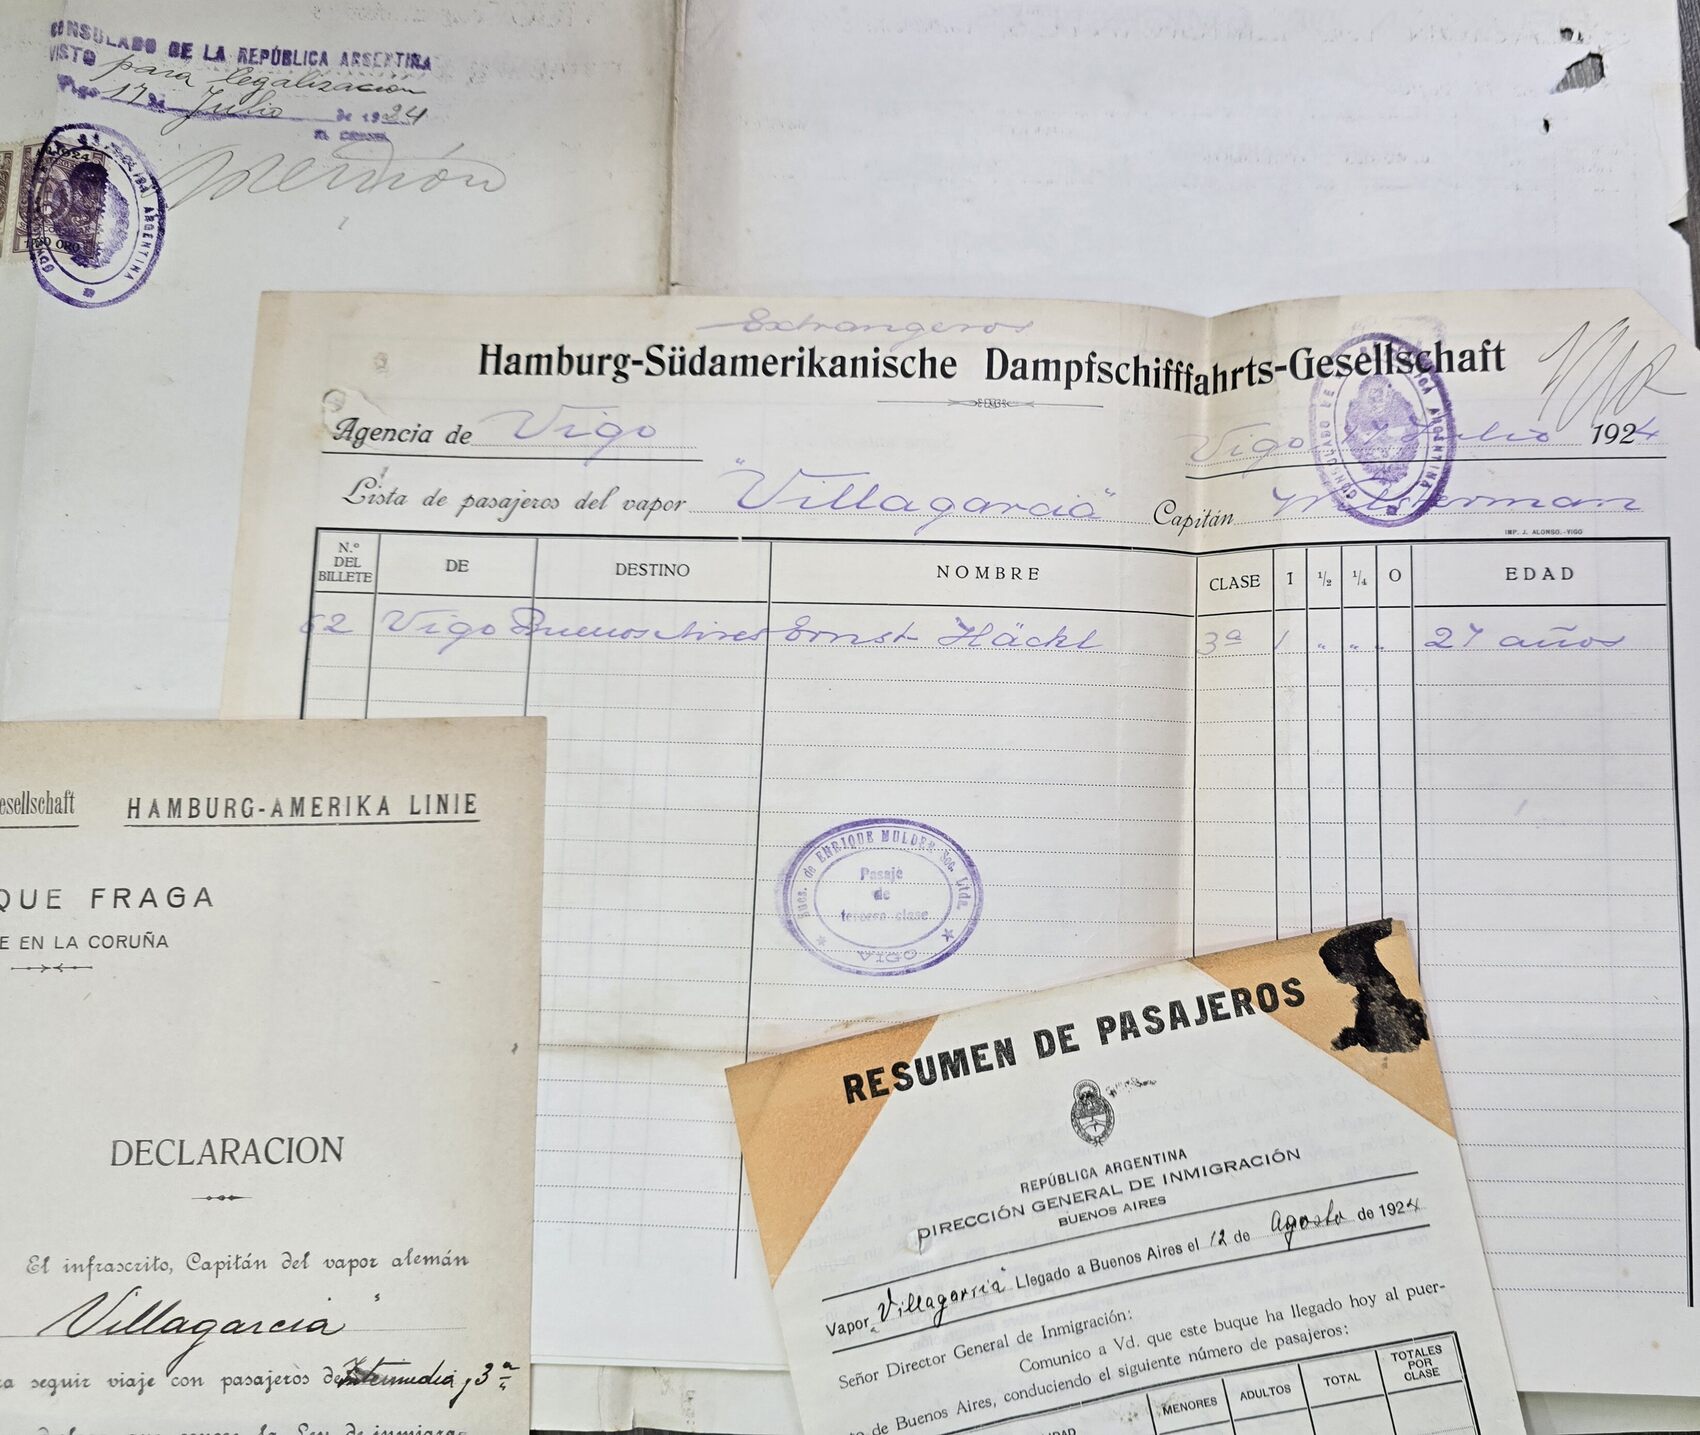 CONSULADO DE LA REPÚBLICA ARGENTINA
VISTO para legalización
Vigo 17 de Julio de 1924
EL CONSUL
1924
ARGENTINA
Extrangeros
Hamburg-Südamerikanische Dampfschifffahrts-Gesellschaft
Agencia de Vigo
Vigo 17 Julio 1924
CONSULADO DE ARGENTINA
Lista de pasajeros del vapor "Villagarcia" Capitán
IMP. J. ALONSO.-VIGO
N.º DEL BILLETE DE DESTINO NOMBRE CLASE 1 1/2 1/4 O EDAD
62 Vigo Buenos Aires Ernst Häckl 3ª 1 " " " 27 años
Sues. de ENRIQUE MULDER Soc. Ltda.
Pasaje
de
tercera clase
esellschaft HAMBURG-AMERIKA LINIE
QUE FRAGA
E EN LA CORUÑA
DECLARACION
El infrascrito, Capitán del vapor alemán
Villagarcia"
ra seguir viaje con pasajeros de Intermedia y 3ª
RESUMEN DE PASAJEROS
REPÚBLICA ARGENTINA
DIRECCIÓN GENERAL DE INMIGRACIÓN
BUENOS AIRES
Vapor "Villagarcia" Llegado a Buenos Aires el 12 de Agosto de 1924
Señor Director General de Inmigración:
Comunico a Vd. que este buque ha llegado hoy al puer-
to de Buenos Aires, conduciendo el siguiente número de pasajeros:
MENORES ADULTOS TOTAL TOTALES POR CLASE